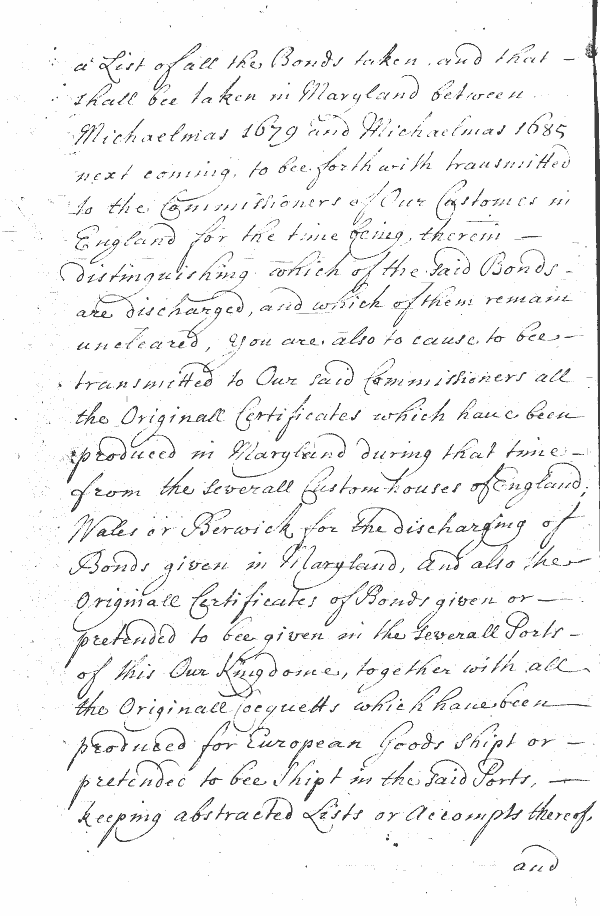 a List of all the Bonds taken and that —
shall bee taken in Maryland between
Michaelmas 1679 and Michaelmas 1685
next coming, to bee forthwith transmitted
to the Commissioners of Our Customes in
England for the time being, therein —
distinguishing which of the said Bonds -
are discharged, and which of them remain
uncleared, You are also to cause to bee —
transmitted to Our said Commissioners all
the Originall Certificates which have been
produced in Maryland during that time —
from the severall Custom houses of England,
Wales or Berwick for the discharging of
Bonds given in Maryland, And also the —
Originall Certificates of Bonds given or —
pretended to bee given in the severall Ports -
of this Our Kingdome, together with all -
the Originall Cocquetts which have been —
produced for European Goods Shipt or —
pretended to bee Shipt in the said Ports, —
keeping abstracted Lists or Accompts thereof,
and